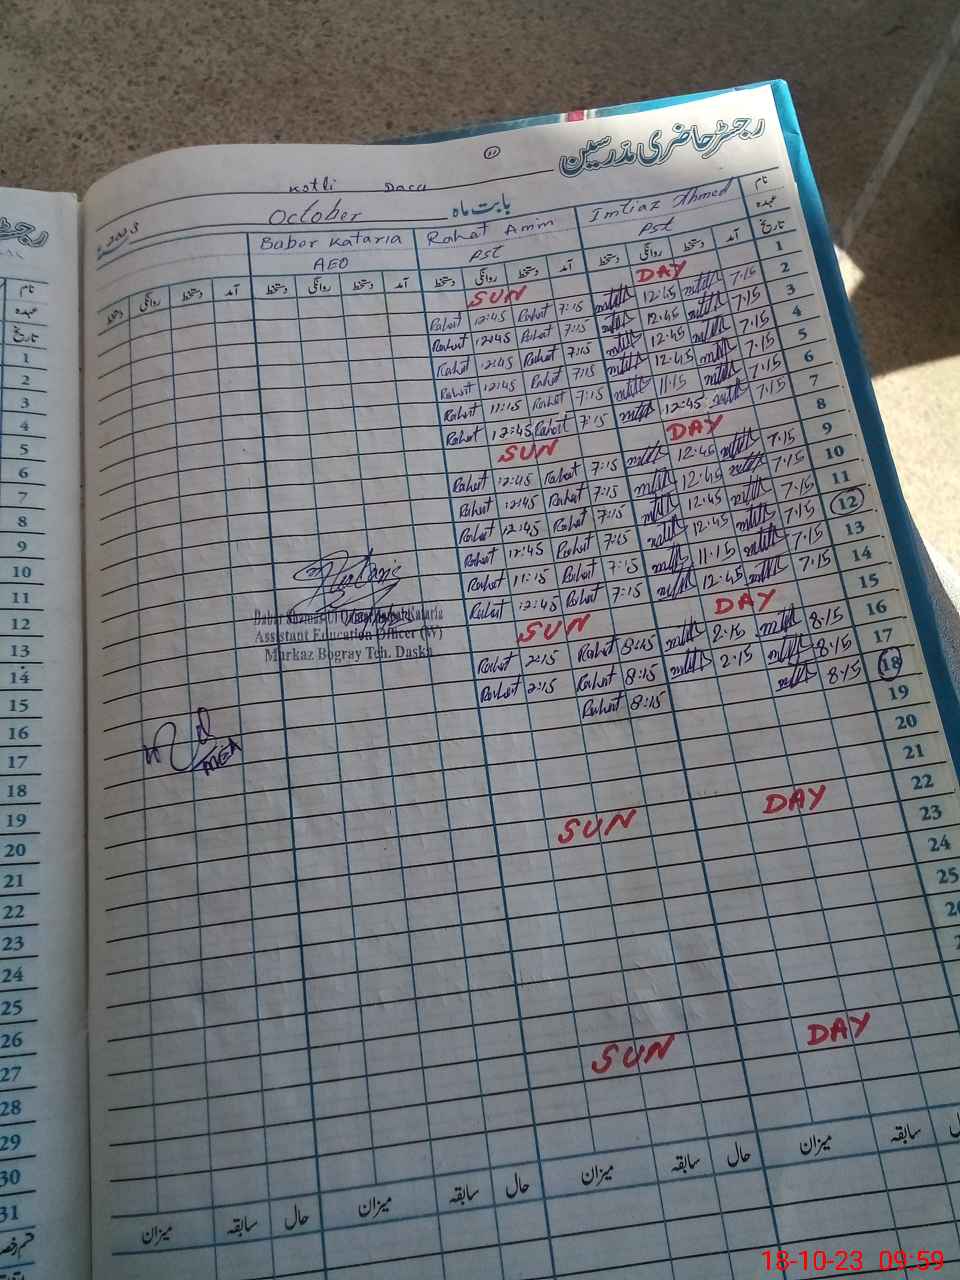 رجسٹر حاضری مدرسین
Kotli
بابت ماہ October 2023
نام Imtiaz Ahmed Rahat Amin Baber Kataria
عہدہ Pst Pst AEO
تاریخ آمد دستخط روانگی دستخط آمد دستخط روانگی دستخط آمد دستخط روانگی دستخط آمد دستخط روانگی دستخط
1 SUN DAY
2 7.15 12.45 7:15 Rahat 12:45 Rahat
3 7.15 12.45 7:15 Rahat 12:45 Rahat
4 7.15 12.45 7:15 Rahat 12:45 Rahat
5 7.15 12.45 7:15 Rahat 12:45 Rahat
6 7.15 11.15 7:15 Rahat 11:15 Rahat
7 7.15 12.45 7:15 Rahat 12:45 Rahat
8 SUN DAY
9 7.15 12.45 7:15 Rahat 12:45 Rahat
10 7.15 12.45 7:15 Rahat 12:45 Rahat
11 7.15 12.45 7:15 Rahat 12:45 Rahat
12 7.15 12.45 7:15 Rahat 12:45 Rahat
13 7.15 11.15 7:15 Rahat 11:15 Rahat
14 7.15 12.45 7:15 Rahat 12:45 Rahat
15 SUN DAY
16 8.15 2.15 8:15 Rahat 2:15 Rahat
17 8.15 2.15 8:15 Rahat 2:15 Rahat
18 8.15 8:15 Rahat
19
20
21
22 SUN DAY
23
24
25
SUN DAY
Assistant Education Officer (W)
Markaz Bogray Teh. Daska
MEA
سابقہ میزان حال سابقہ میزان حال سابقہ میزان حال سابقہ میزان
نام
عہدہ
تاریخ
1
2
3
4
5
6
7
8
9
10
11
12
13
14
15
16
17
18
19
20
21
22
23
24
25
26
27
28
29
30
31
18-10-23 09:59